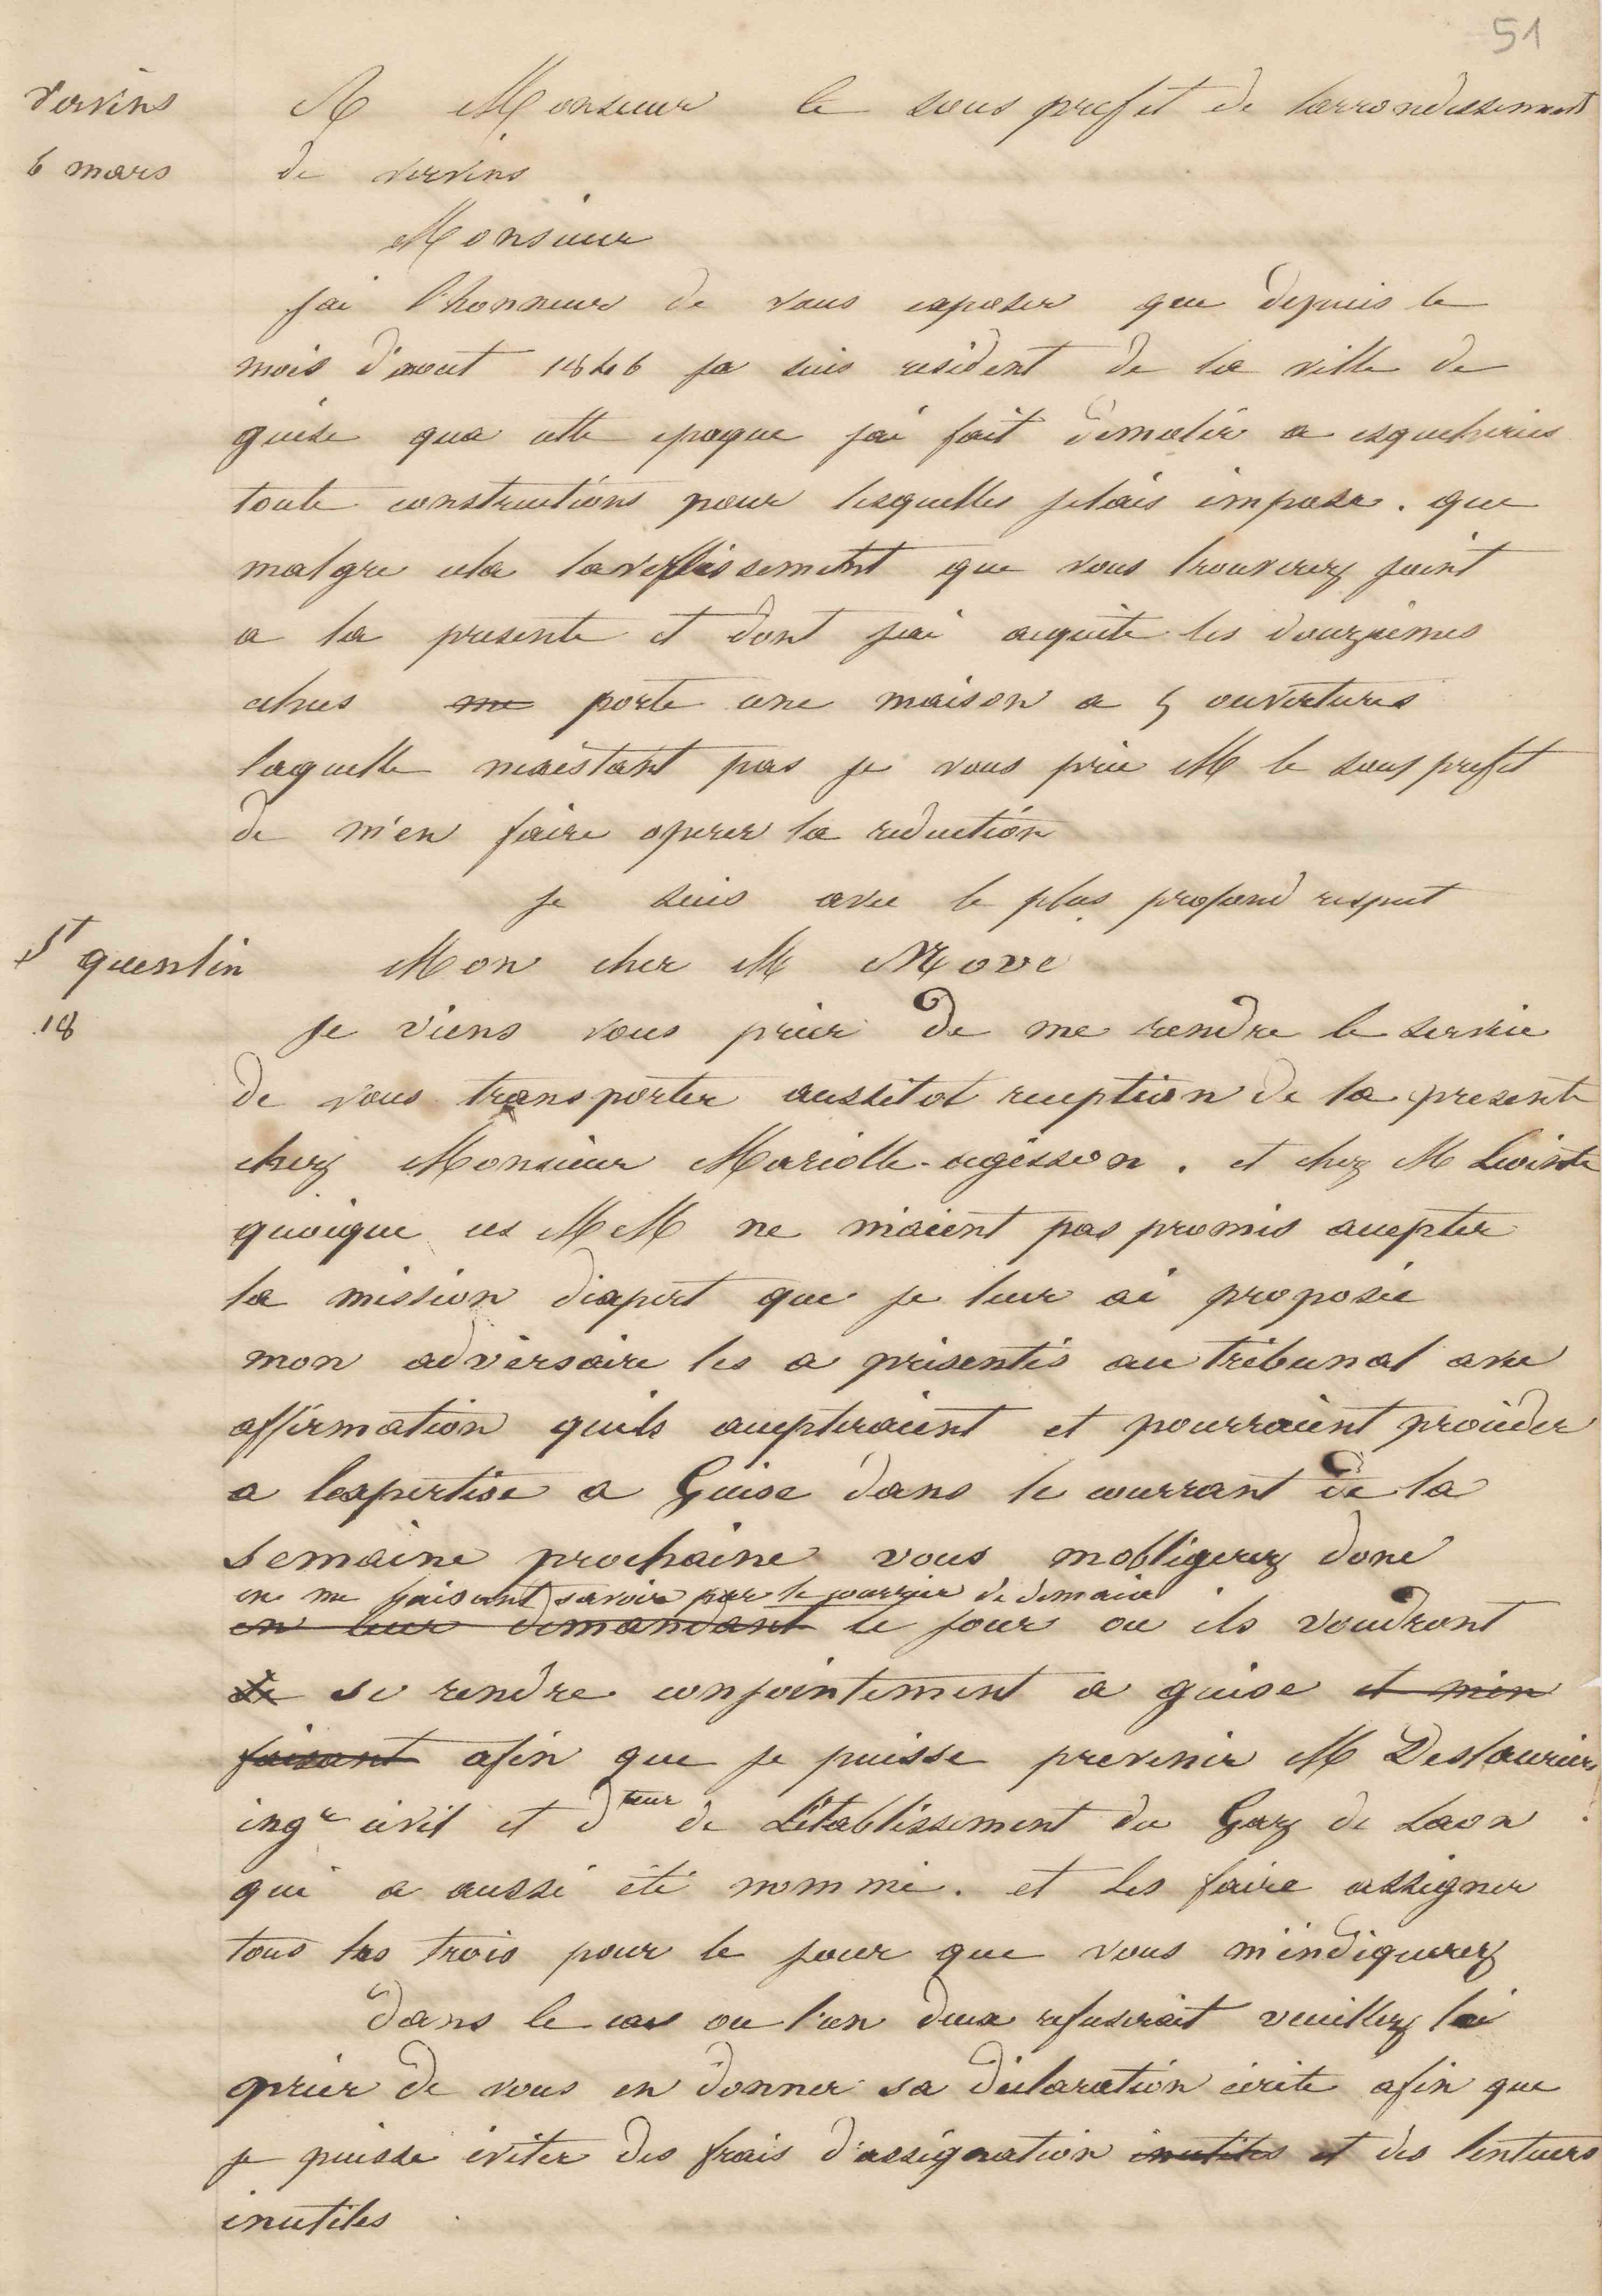 51
Vervins A Monsieur le sous prefet de larrondissement
6 mars de vervins
Monsieur
jai l'honneur de vous exposer que depuis le
mois d'aout 1846 je suis resident de la ville de
guise qua cette epoque jai fait demolir a esqueheries
toute constructions pour lesquelles jetais impose. que
malgre cela lavertissement que vous trouverez joint
a la presente et dont jai acquite les douziemes
echus me porte une maison a 5 ouvertures
laquelle nexistant pas je vous prie M le sous prefet
de m'en faire operer la reduction
je suis avec le plus profond respect
St quentin Mon cher M Move
18 Je viens vous prier de me rendre le service
de vous transporter aussitot reception de la presente
chez Monsieur Mariolle-agesson. et chez M Lecointe
quoique ces MM ne m'aient pas promis accepter
la mission dexpert que je leur ai proposée
mon adversaire les a présentés au tribunal avec
affirmation quils accepteraient et pourraient proceder
a lexpertise a Guise dans le courrant de la
semaine prochaine vous mobligerez donc
en me faisant savoir par le courrier de demain
en leur demandant le jour ou ils voudront
de se rendre conjointement a guise et men
faisant afin que je puisse prevenir M Deslaurier
ingr civil et dteur de L'établissement du Gaz de Laon
qui a aussi été nommé. et les faire assigner
tous les trois pour le jour que vous m'indiquerez
dans le cas ou l'un deux refuserait veuillez le
prier de vous en donner sa déclaration écrite afin que
je puisse éviter des frais d'assignation inutiles et des lenteurs
inutiles